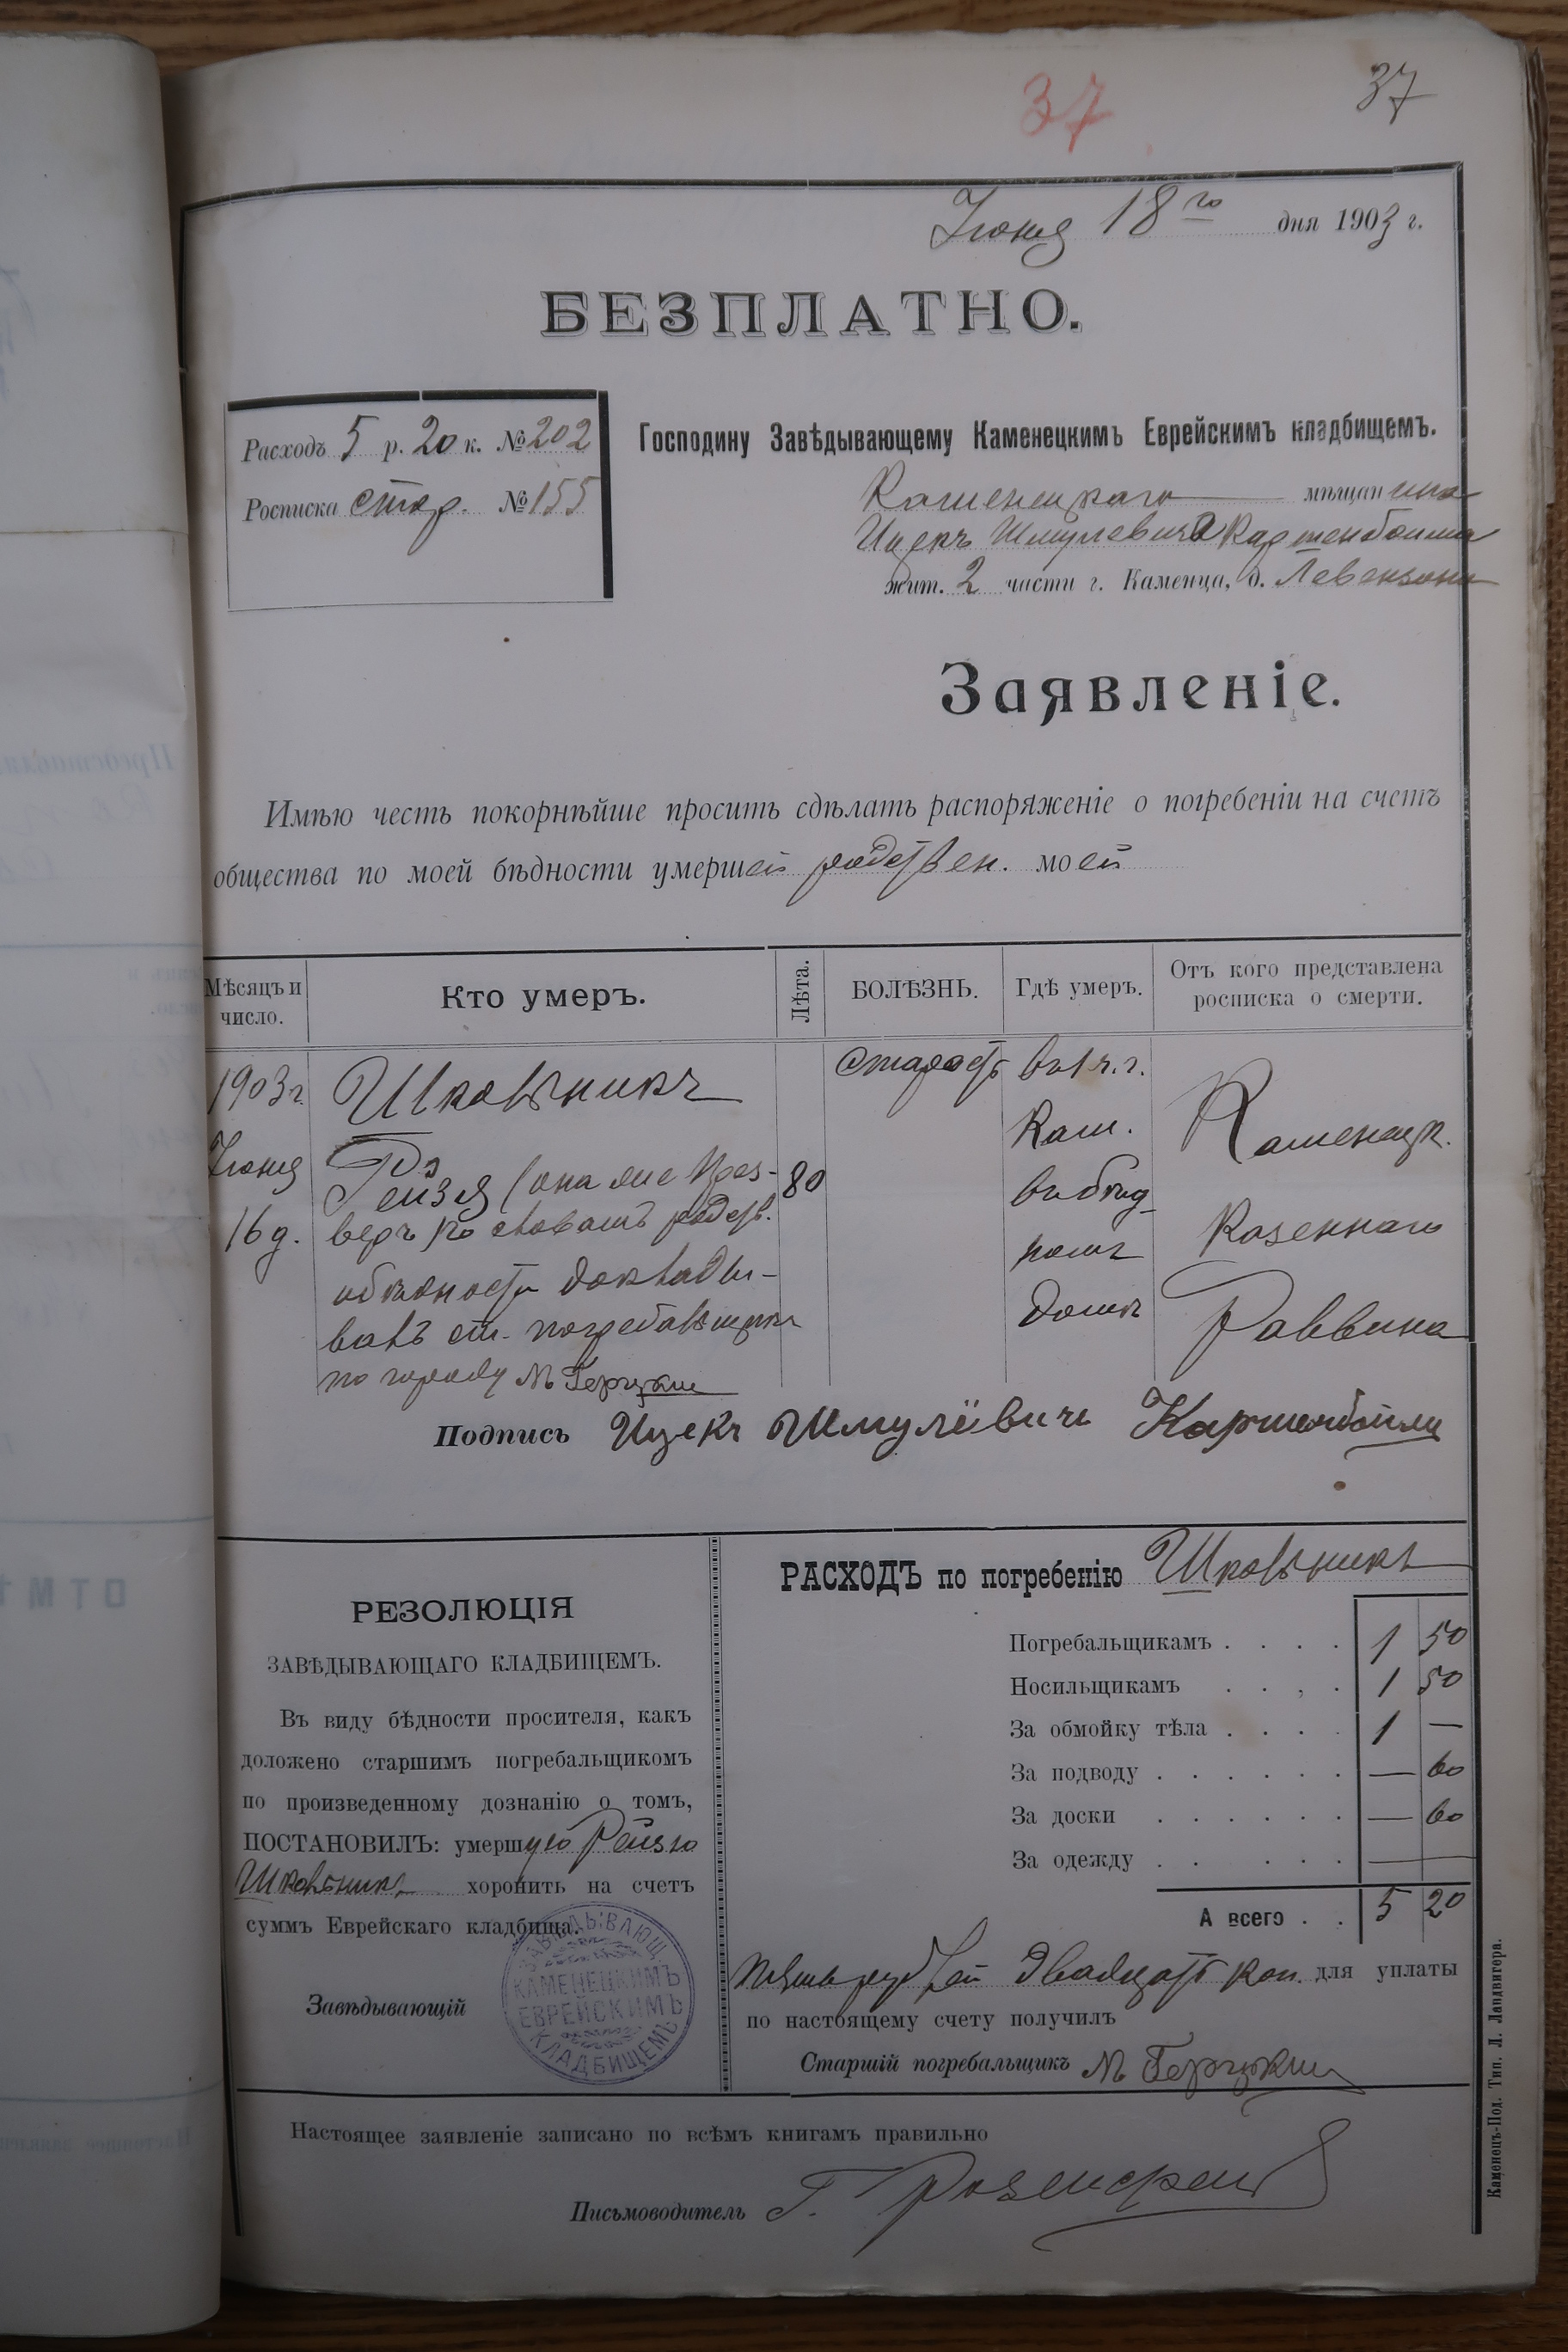 37 37
Іюня 18го дня 1903 г.
БЕЗПЛАТНО.
Расходъ 5 р. 20 к. № 202
Росписка стар. № 155
Господину Завѣдывающему Каменецкимъ Еврейскимъ кладбищемъ.
Каменецкаго мѣщанина
Ицекъ Шмулевича
жит. 2 части г. Каменца, д. Левензона
Заявленіе.
Имѣю честь покорнѣйше просить сдѣлать распоряженіе о погребеніи на счетъ
общества по моей бѣдности умершей родствен. моей
Мѣсяцъ и число.
Кто умеръ.
Лѣта.
БОЛѢЗНЬ.
Гдѣ умеръ.
Отъ кого представлена росписка о смерти.
1903 г.
Іюня
16 д.
Школьникъ
Рейзя (она же
по словамъ родств.
докладывалъ ст. погребальщикъ
по городу М
80
старость
въ 1 ч. г.
Кам.
домѣ
Каменецк.
Казеннаго
Раввина
Подпись Ицекъ Шмулёвичъ
РЕЗОЛЮЦІЯ
ЗАВѢДЫВАЮЩАГО КЛАДБИЩЕМЪ.
Въ виду бѣдности просителя, какъ
доложено старшимъ погребальщикомъ
по произведенному дознанію о томъ,
ПОСТАНОВИЛЪ: умершую Рейзю
Школьникъ хоронить на счетъ
суммъ Еврейскаго кладбища.
Завѣдывающій
ЗАВѢДЫВАЮЩ.
КАМЕНЕЦКИМЪ
ЕВРЕЙСКИМЪ
КЛАДБИЩЕМЪ
РАСХОДЪ по погребенію Школьникъ
Погребальщикамъ . . . . 1 50
Носильщикамъ . . , . 1 50
За обмойку тѣла . . . . 1 —
За подводу . . . . . . — 60
За доски . . . . . . — 60
За одежду . . . . . . —
А всего . . 5 20
Пять рублей двадцать коп. для уплаты
по настоящему счету получилъ
Старшій погребальщикъ М
Настоящее заявленіе записано по всѣмъ книгамъ правильно
Письмоводитель Г.
Каменецъ-Под. Тип. Л. Ландвигера.